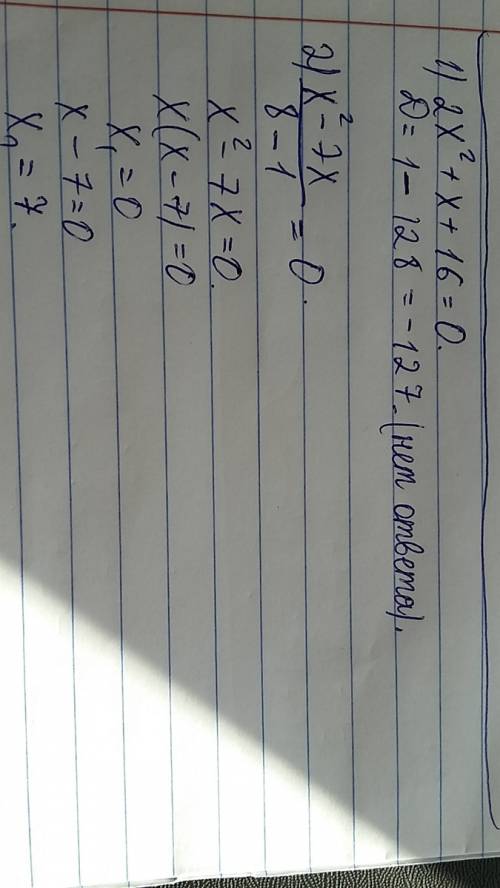 1) 2x² + x + 16 = 0.
D = 1 - 128 = -127. (нет ответа).
2) x² - 7x / 8 - 1 = 0.
x² - 7x = 0.
x(x - 7) = 0
x₁ = 0
x - 7 = 0
x₂ = 7.